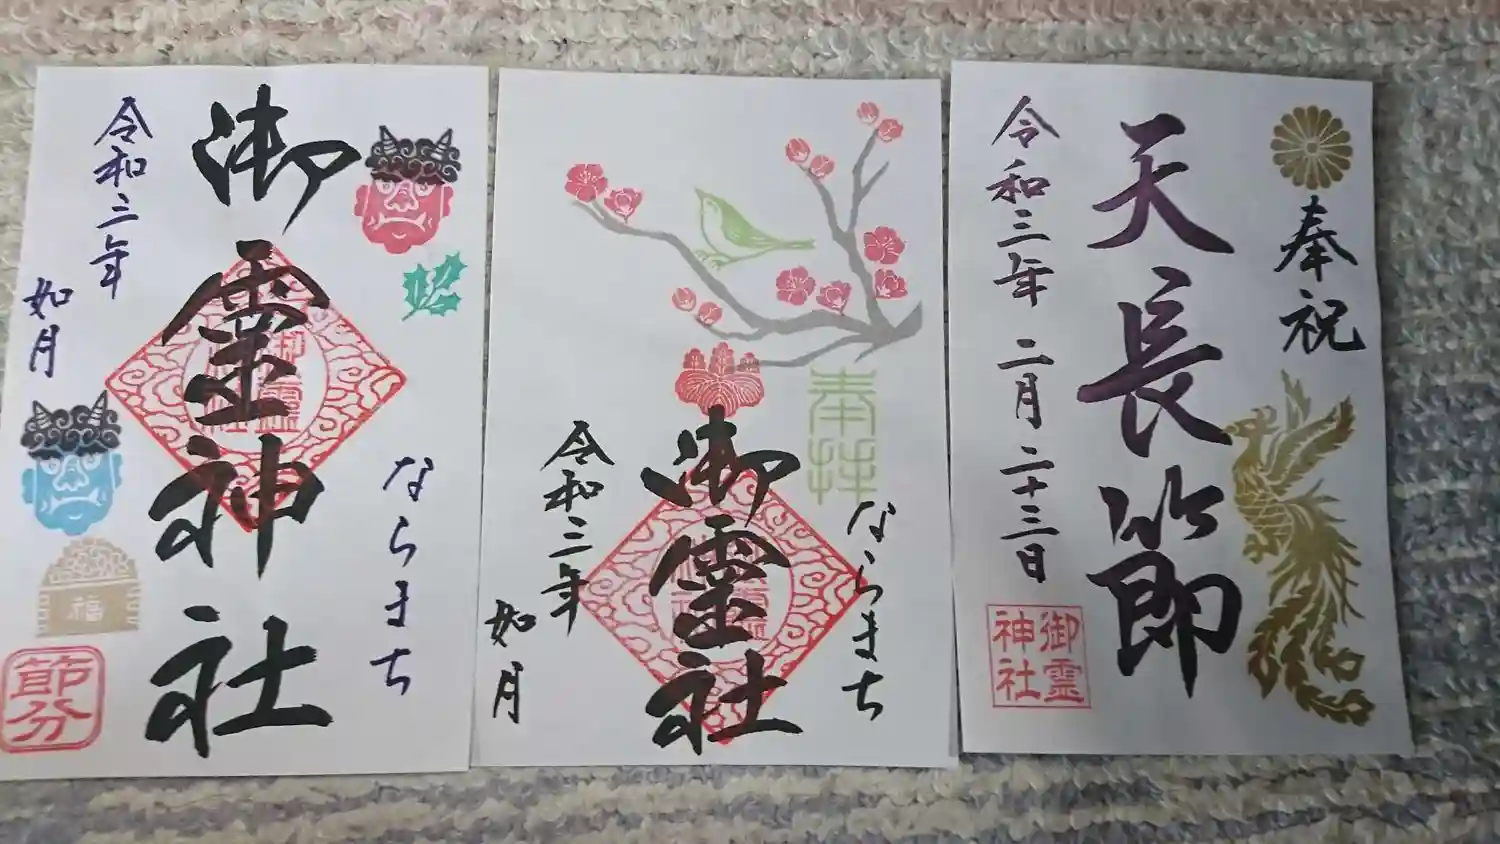 ならまち
御霊神社
令和三年
如月
福
節分
奉拝
ならまち
御霊社
令和三年
如月
奉祝
天長節
令和三年 二月 二十三日
御霊
神社